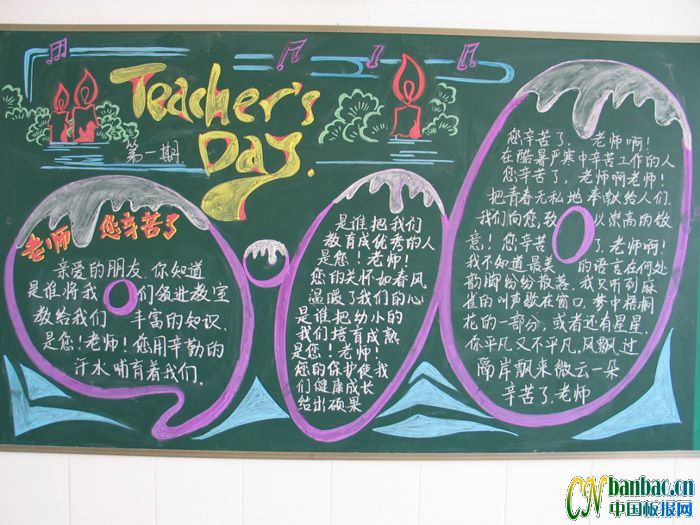 Teacher's
Day.
第一期
老师 您辛苦了
亲爱的朋友.你知道
是谁将我们领进教室
教给我们丰富的知识.
是您!老师!您用辛勤的
汗水哺育着我们.
是谁把我们
教育成优秀的人
是您!老师!
您的关怀如春风
温暖了我们的心
是谁把幼小的
我们培育成熟
是您!老师!
您的保护使我
们健康成长
结出硕果
您辛苦了、老师啊!
在酷暑严寒中辛苦工作的人
您辛苦了,老师啊老师!
把青春无私地奉献给人们.
我们向您,致以崇高的敬
意!您辛苦了、老师啊!
我不知道最美的语言在何处
韵脚纷纷散落,我只听到麻
雀的叫声歇在窗口,梦中梧桐
花的一部分,或者还有星星.
你平凡又不平凡.风飘过
隔岸飘来微云一朵
辛苦了.老师
CN banbao.cn
中国板报网